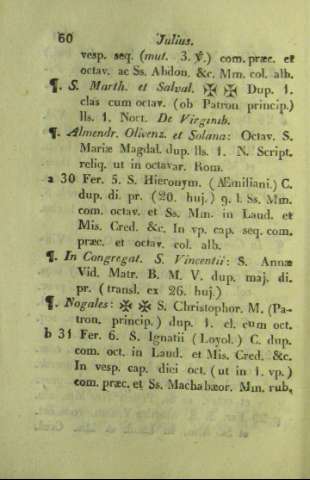 60 Julius.
vesp. seq. (mut. 3. ℣.) com. præc. et
octav. ac Ss. Abdon. &c. Mm. col. alb.
¶. S. Marth. et Salval. ✠ ✠ Dup. 1.
clas cum octav. (ob Patron princip.)
lls. 1. Noct. De Virginib.
¶. Almendr. Olivenz. et Solana: Octav. S.
Mariæ Magdal. dup. lls. 1. N. Script.
reliq. ut in octavar. Rom.
a 30 Fer. 5. S. Hieronym. (Æmiliani.) C.
dup. di. pr. (20. huj.) g. l. Ss. Mm.
com. octav. et Ss. Mm. in Laud. et
Mis. Cred. &c. In vp. cap. seq. com.
præc. et octav. col. alb.
¶. In Congregat. S. Vincentii: S. Annæ
Vid. Matr. B. M. V. dup. maj. di.
pr. (transl. ex 26. huj.)
¶. Nogales: ✠ ✠ S. Christophor. M. (Pa-
tron. princip.) dup. 1. cl. cum oct.
b 31 Fer. 6. S. Ignatii (Loyol.) C. dup.
com. oct. in Laud. et Mis. Cred. &c.
In vesp. cap. diei oct. (ut in 1. vp.)
com. præc. et Ss. Machabæor. Mm. rub.